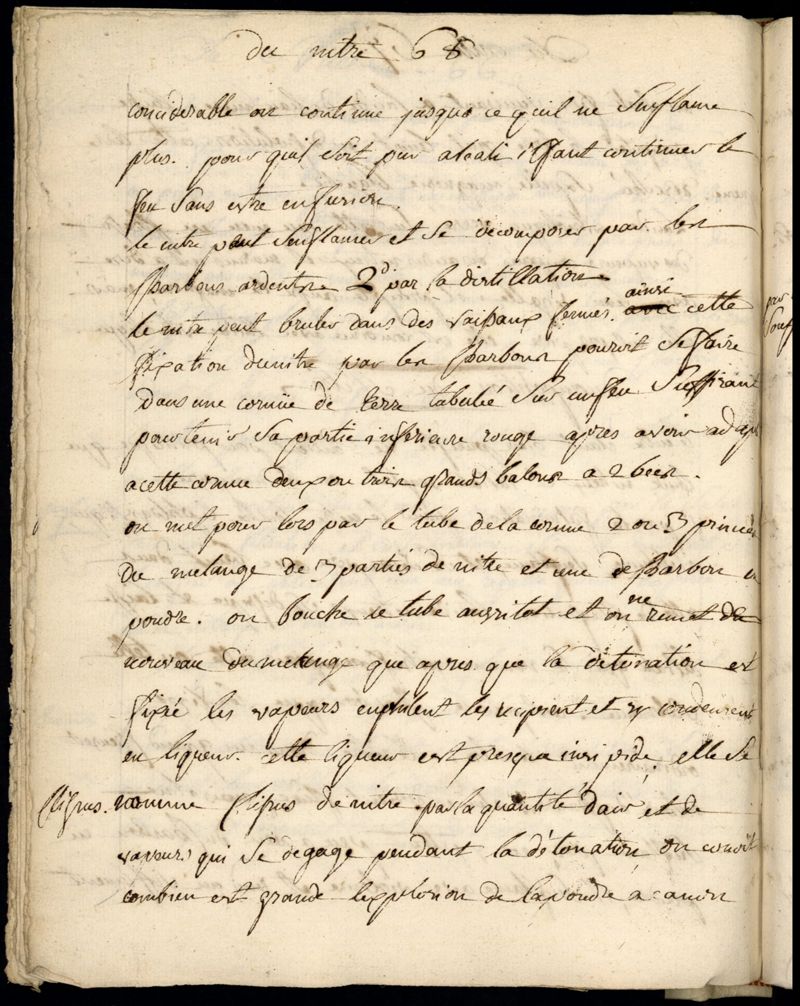 du nitre 68
considerable on continue jusqua ce quil ne senflame
plus. pour quil soit pur alcali il faut continuer le
feu sans estre en fusion.
le nitre peut senflamer et se decomposer par les
charbons ardents 2.º par la distillation
le nitre peut bruler dans des vaissaux fermés. ainsi cette
fixation du nitre par les charbons pouroit se faire
dans une cornüe de terre tubulée sur un feu suffisant
pour tenir sa partie inferieure rouge apres avoir adapté
a cette cornue deux ou trois grands balons a 2 becs.
on met pour lors par le tube de la cornue 2 ou 3 pincées
du melange de 3 parties de nitre et une de charbon en
poudre. on bouche le tube aussitot et on ne remet de
nouveau du melange que apres que la détonation est
fixé les vapeurs enfilent les recipient et sy condensent
en liqueur. cette liqueur est presqua insipide. elle se
clissus. nomme clissus de nitre. par la quantité dair et de
vapeurs qui se degage pendant la détonation, on conoit
combien est grande lexplosion de la poudre a canon